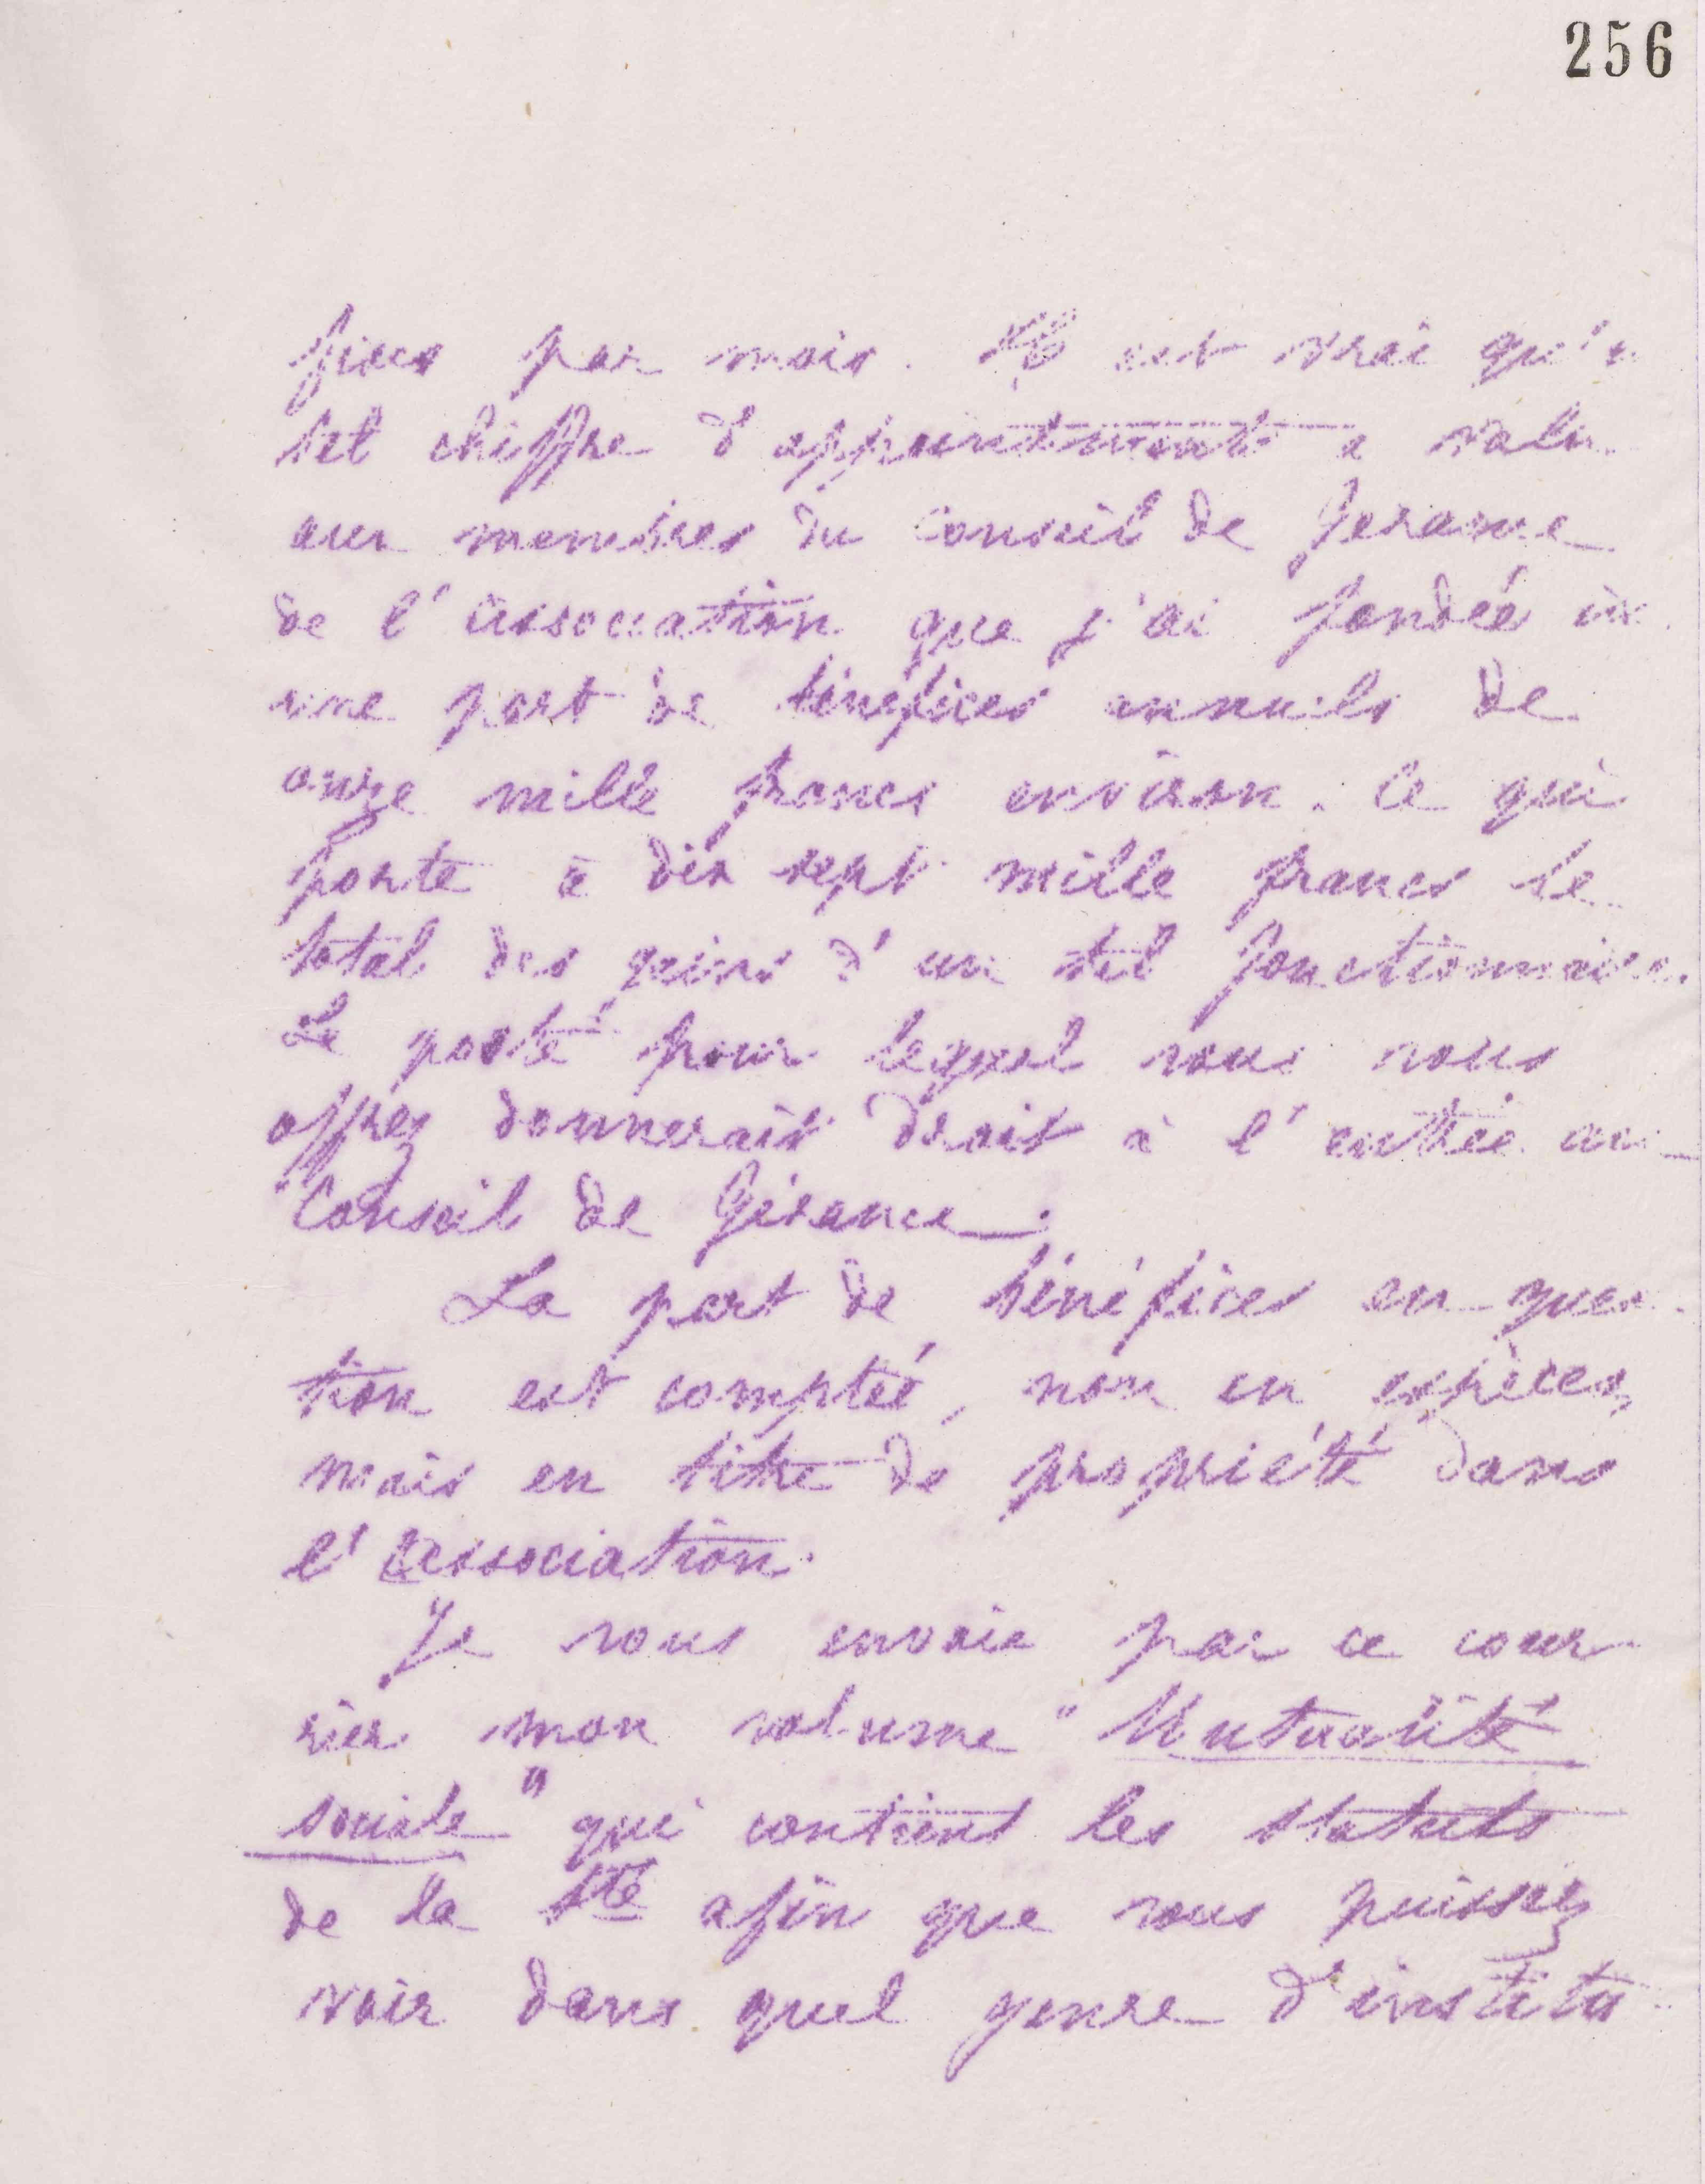 256
fixes par mois. Il est vrai qu'u
tel chiffre d'appointement a valu
aux membres du Conseil de Gérance
de l'association que j'ai fondée ici
une part de bénéfices annuels de
onze mille francs environ. Ce qui
porte à dix sept mille francs le
total des gains d'un tel fonctionnaire.
Le poste pour lequel vous vous
offrez donnerait droit à l'entrée au
Conseil de Gérance.
La part de bénéfices en ques
tion est comptée, non en espèces,
mais en titre de propriété dans
l'Association.
Je vous envoie par ce cour
rier mon volume "Mutualité
sociale" qui contient les statuts
de la Sté afin que vous puissiez
voir dans quel genre d'institu